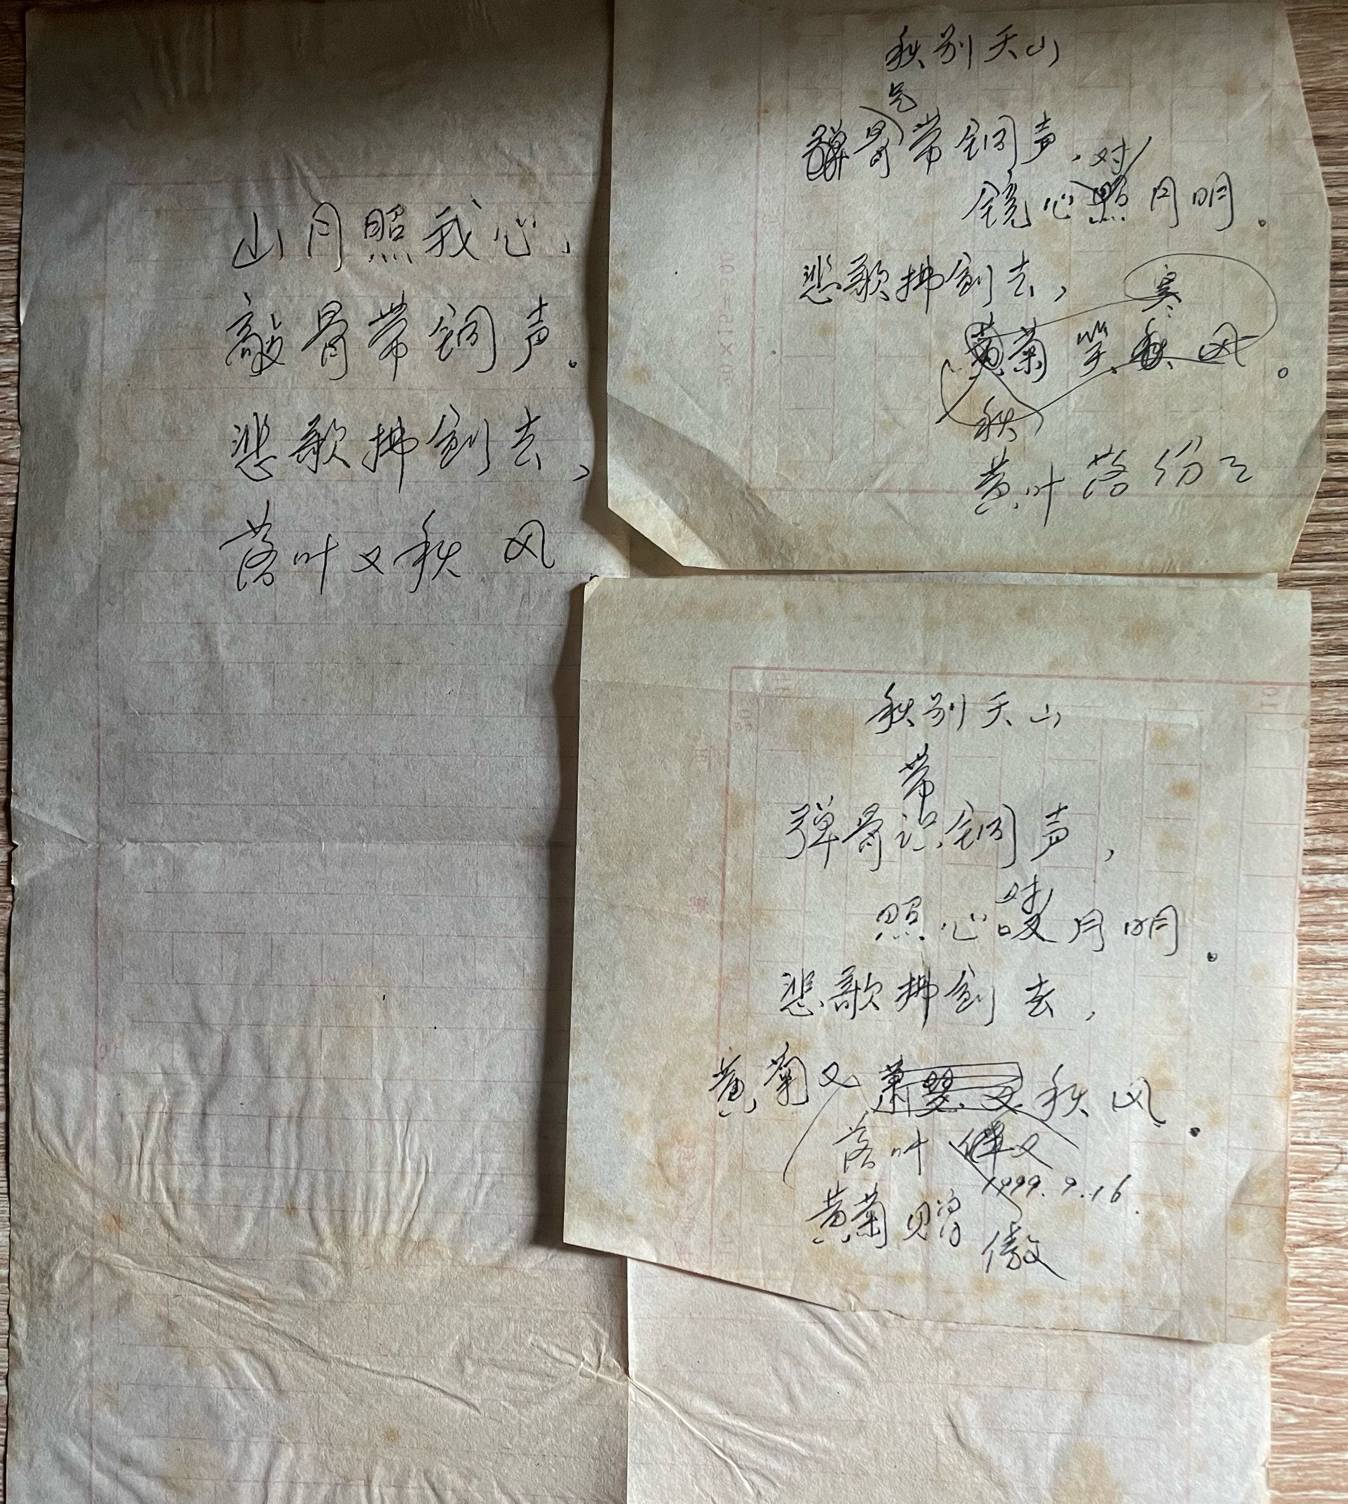 山月照我心，
敲骨带铜声。
悲歌拂剑去，
落叶又秋风。
秋别天山
骨带铜声，对
镜心照月明。
悲歌拂剑去，
寒
黄菊笑秋风。
秋
黄叶落纷々
秋别天山
带
弹骨识铜声，
对
照心唛月明。
悲歌拂剑去，
黄菊又萧瑟又秋风。
落叶
1999.9.16.
黄菊贈
傲